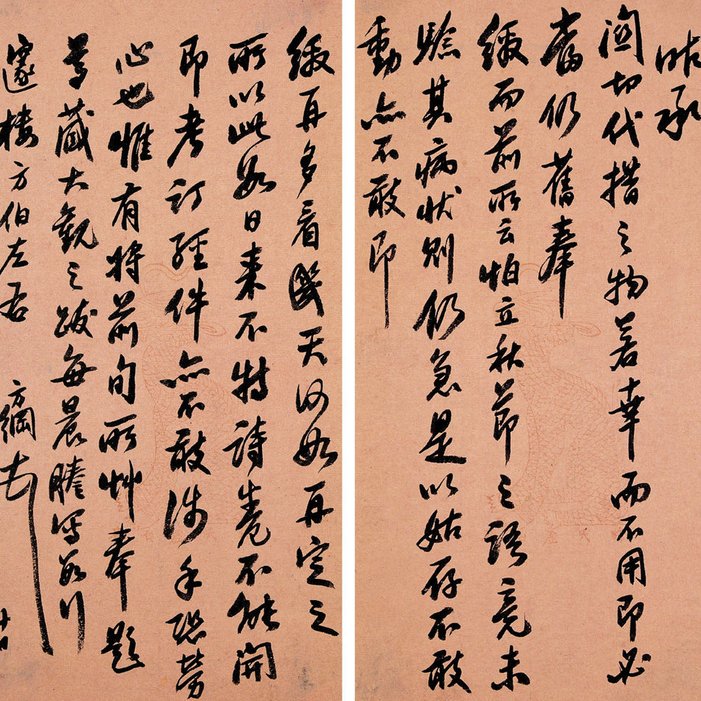 昨承
關切代措之物若幸而不用即必
奮仍舊奉
繳而前所云怕立秋節之語竟未
驗其病狀則仍急是以姑存不敢
動亦不敢即
繳再多看幾天何如再定之
所以此數日來不特詩卷不能開
即考訂經件亦不敢涉手恐勞
心也惟有將前旬所艸奉題
尊藏大觀之跋每晨謄寫數行
蘧樓方伯左右 方綱頓首 廿